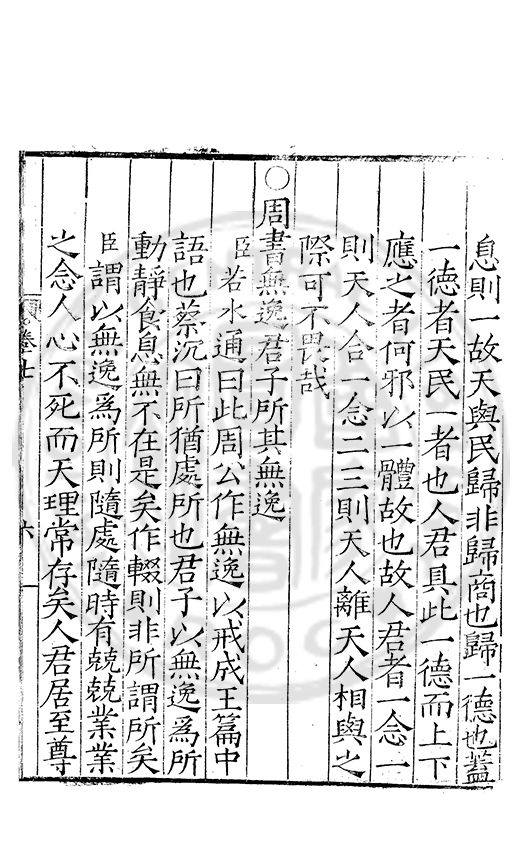 息則一故天與民歸非歸商也歸一德也蓋
一德者天民一者也人君具此一德而上下
應之者何邪以一體故也故人君者一念一
則天人合一念二三則天人離天人相與之
際可不畏哉
○周書無逸君子所其無逸
臣若水通曰此周公作無逸以戒成王篇中
語也蔡沉曰所猶處所也君子以無逸爲所
動靜食息無不在是矣作輟則非所謂所矣
臣謂以無逸爲所則隨處隨時有兢兢業業
之念人心不死而天理常存矣人君居至尊
卷十
六